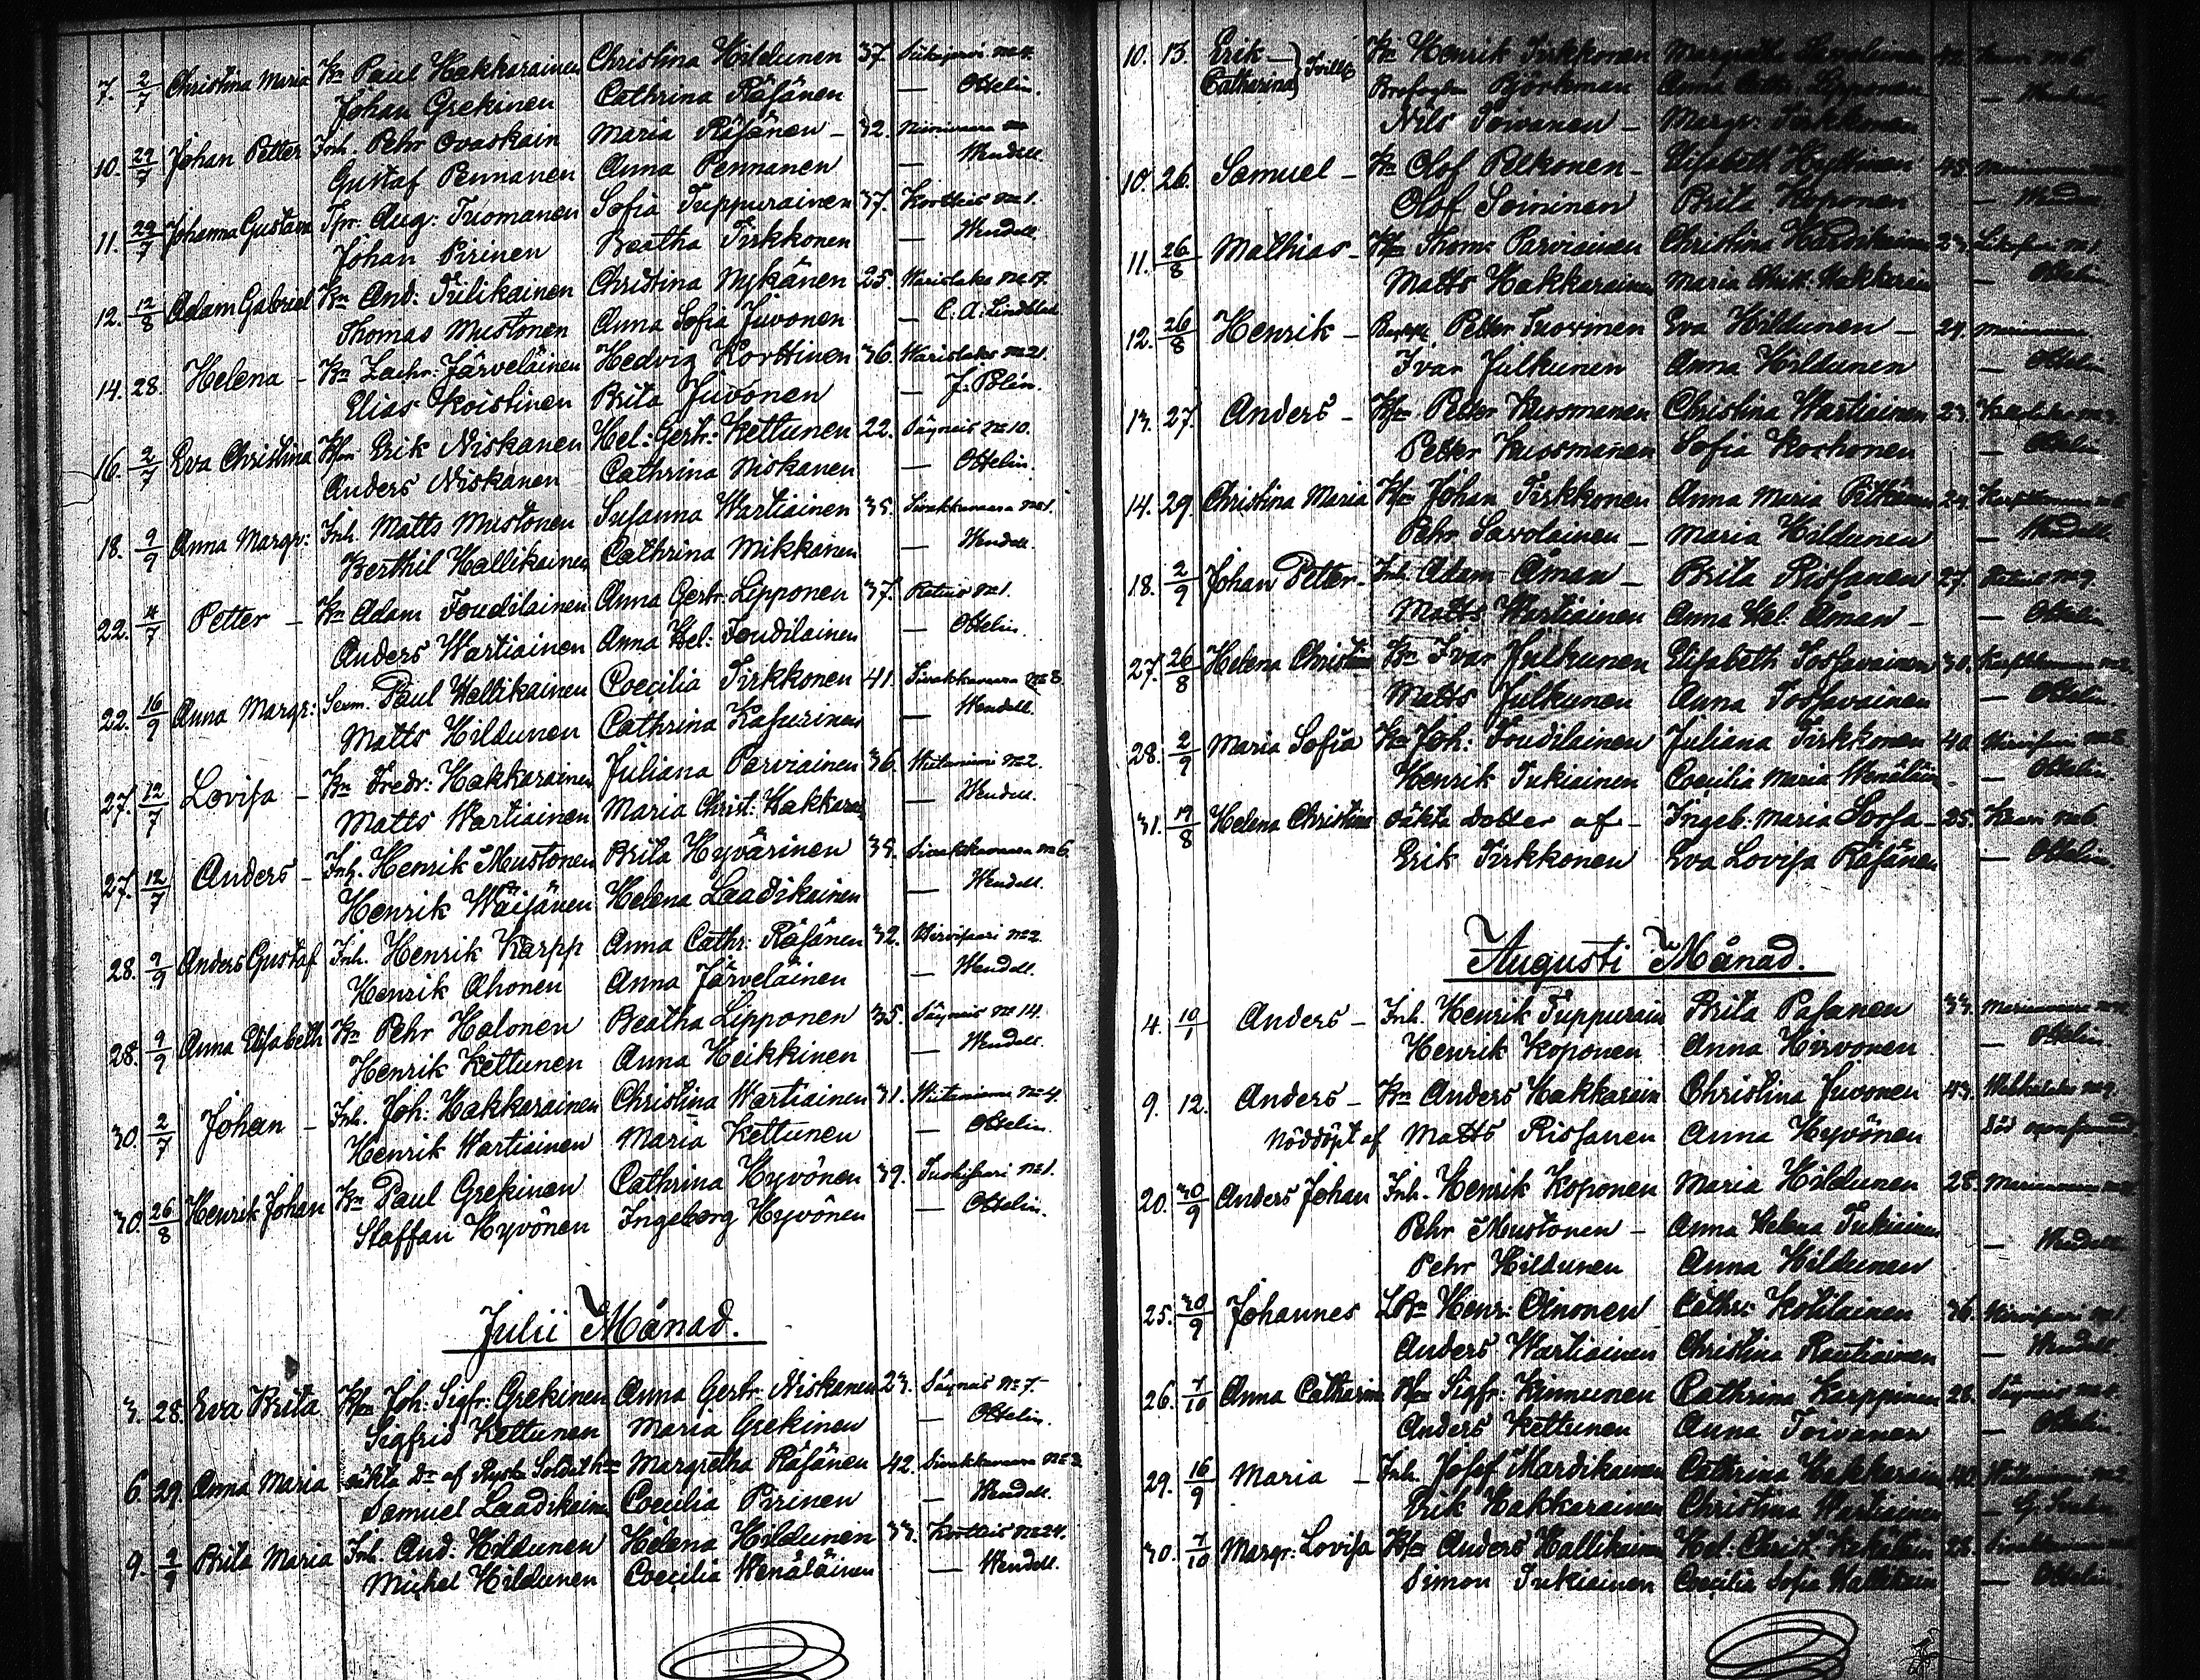 7. 2/7 Christina Maria Bn Paul Hakkarainen Christina Hildunen 37.
Johan Grekinen Cathrina Räsänen — Ottelin.
10. 29/7 Johan Petter Inh. Pehr Ovaskain Maria Räsänen – 32.
Gustaf Pennanen Anna Pennanen — Wendell.
11. 29/7 Johanna Gustava Tpr. Aug: Tuomanen Sofia Tuppurainen 37. Kortteis No 1.
Johan Pirinen Beatha Tirkkonen — Wendell.
12. 12/8 Adam Gabriel Bn And: Tulikainen Christina Nykänen 25. Warislaks No 17.
Thomas Mustonen Anna Sofia Juvonen — C. A. Lindblad
14. 28. Helena – Bn Zachr. Järveläinen Hedvig Korttinen 36. Warislaks No 21.
Elias Koistinen Brita Juvonen — J. Polén.
16. 2/7 Eva Christina Bsn Erik Niskanen Hel: Gertr: Kettunen 22. Säyneis No 10.
Anders Niskanen Cathrina Niskanen — Ottelin.
18. 9/9 Anna Margr: Inh. Matts Mustonen Susanna Wartiainen 35. Sivakkavaara No 1.
Berthil Hallikainen Cathrina Mikkainen — Wendell.
22. 4/7 Petter – Bn Adam Toudilainen Anna Gertr. Lipponen 37. Ratius No 1.
Anders Wartiainen Anna Hel: Toudilainen — Ottelin.
22. 16/9 Anna Margr: Sexm. Paul Hallikainen Coecilia Tirkkonen 41. Sivakkavaara No 8.
Matts Hildunen Cathrina Kasurinen — Wendell.
27. 12/7 Lovisa – Bn Fredr: Hakkarainen Juliana Parviainen 36. Wiitaniemi No 2.
Matts Wartiainen Maria Christ: Hakkarai — Wendell.
27. 12/7 Anders – Inh. Henrik Mustonen Brita Hyvärinen 39. Sivakkavaara No 6.
Henrik Wäisänen Helena Laadikainen — Wendell.
28. 9/9 Anders Gustaf Inh. Henrik Karpp Anna Cathr: Räsänen 32. Hirvisaari No 2.
Henrik Ahonen Anna Järveläinen — Wendell.
28. 9/9 Anna Elisabeth Bn Pehr Halonen Beatha Lipponen 35. Säyneis No 14.
Henrik Kettunen Anna Heikkinen — Wendell.
30. 2/7 Johan – Inh. Joh: Hakkarainen Christina Wartiainen 31. Wiitaniemi No 4.
Henrik Wartiainen Maria Kettunen — Ottelin.
30. 26/8 Henrik Johan Bn Paul Grekinen Cathrina Hyvönen 39. No 1.
Staffan Hyvönen Ingeborg Hyvönen — Ottelin.
Julii Månad.
3. 28. Eva Brita Bsn Joh: Sigfr: Grekinen Anna Gertr. Niskanen 23. Säyneis No 7.
Sigfrid Kettunen Maria Grekinen — Ottelin.
6. 29. Anna Maria oäkta Dr af Margretha Räsänen 42. Sivakkavaara No 2
Samuel Laadikaine Coecilia Pirinen — Wendell.
9. 9/9 Brita Maria Inh. And. Hildunen Helena Hildunen 33. Kortteis No 24.
Michel Hildunen Coecilia Wenäläinen — Wendell.
10. 13. Erik – Catharina } Tvill. Bn Henrik Tirkkonen
Björkman Anna Lipponen — Wendell
Nils Toivanen – Margr: Tirkkonen
10. 26. Samuel – Bn Olof Pelkonen – Elisabeth Hyttinen
Olof Soininen Brita Koponen — Wendell
11. 26/8 Mathias – Bsn Thoms Parviainen Christina 23.
Matts Hakkarainen Maria Christ: Hakkarain — Ottelin.
12. 26/8 Henrik – Petter Tuovinen Eva Hildunen – 24.
Ivar Julkunen Anna Hildunen — Ottelin
13. 27. Anders – Bsn Petter Kuosmanen Christina Wartiainen 23.
Petter Kuosmanen Sofia Korhonen — Ottelin
14. 29. Christina Maria Bsn Johan Tirkkonen Anna Maria 24.
Pehr Savolainen – Maria Hildunen — Wendell.
18. 2/9 Johan Petter – Inh. Adam Åman – Brita Rissanen 27 Ratius No 9.
Matts Wartiainen Anna Hel: Åman – — Ottelin.
27. 26/8 Helena Christina Bn Ivar Julkunen Elisabeth Tossavainen 30.
Matts Julkunen Anna Tossavainen — Ottelin.
28. 2/9 Maria Sofia Bn Joh: Toudilainen Juliana Tirkkonen 40.
Henrik Tukiainen Coecilia Maria Wenäläin — Ottelin.
31. 19/8 Helena Christina oäkta dotter af – Ingeb: Maria Sorsa – 25. No 6
Erik Tirkkonen Eva Lovisa Räsänen — Ottelin.
Augusti Månad.
4. Anders – Inh. Henrik Tuppurain Brita Pasanen 33.
Henrik Koponen Anna Hirvonen — Ottelin
9. 12. Anders – Bn Anders Hakkarain Christina Juvonen 43.
Nöddöpt af Matts Rissanen Anna Hyvönen
20. 30/9 Anders Johan Inh. Henrik Koponen Maria Hildunen 28.
Pehr Mustonen – Anna Helena Tukiainen
Pehr Hildunen Anna Hildunen — Wendell
25. 30/9 Johannes Henr: Oinonen Cathr: Kotilainen 36. Hirvisaari No 1.
Anders Wartiainen Christina Rautiainen — Wendell.
26. 7/10 Anna Catharina Bsn Sigfr: Kinnunen Cathrina Karppinen 28. Säyneis
Anders Kettunen Anna Toivanen — Ottelin.
29. 16/9 Maria – Inh. Josef Mardikainen Cathrina Hakkarain 40. Wiitaniemi No 2.
Erik Hakkarainen Christina Wartiainen
30. 7/10 Margr: Lovisa Bsn Anders Hallikainen Hel. Christ. 28.
Simon Tukiainen Coecilia Sofia Hallikain — Ottelin.